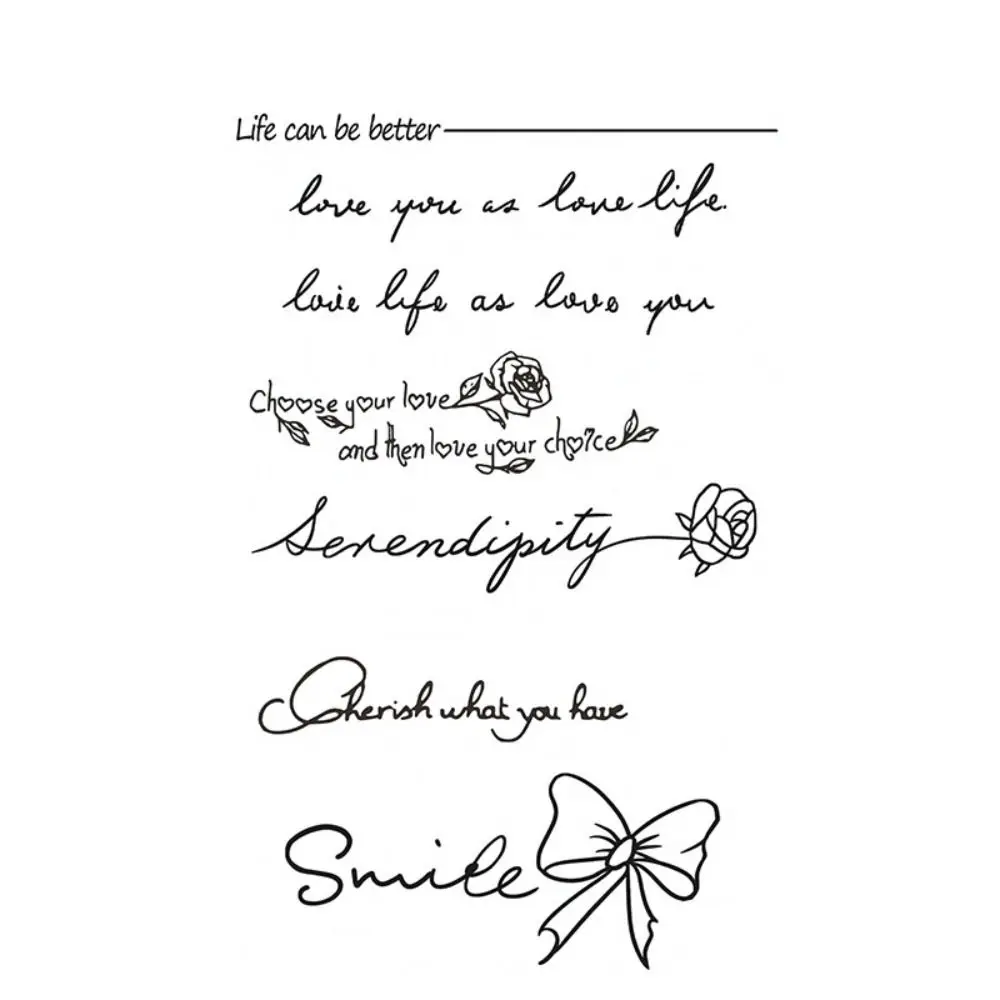 Life can be better
love you as love life.
love life as love you
Choose your love
and then love your choice
Serendipity
Cherish what you have
Smile